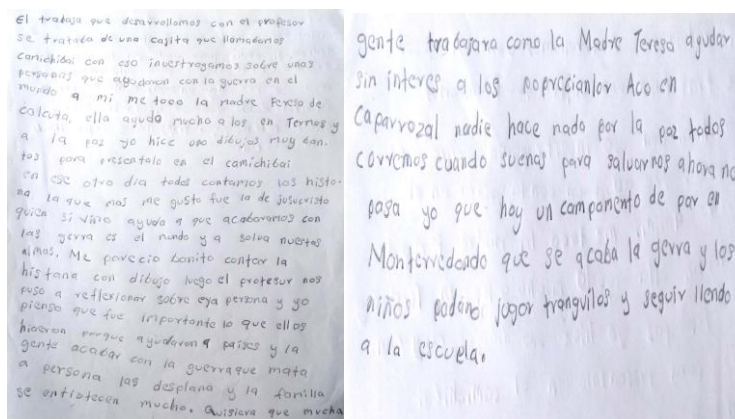 El trabajo que desarrollamos con el profesor
se trataba de una cajita que llamabamos
camichibai con eso investragamos sobre unas
personas que ayudaron con la guerra en el
mundo a mi me toco la madre Teresa de
calcuta, ella ayudo mucho a los en Termos y
a la paz yo hice uno dibujos muy can.
tos para presentalo en el camichibai
en ese otro dia todos contamos los histo.
ria la que mas me gusto fue la de Jesucristo
quien si vino ayuda a que acabaramos con
las gerra es el mundo y a solva nuestas
almas. Me parecio bonito contar la
histaria con dibujo luego el profesur nos
puso a reflexionar sobre eya persona y yo
pienso que fue importante lo que ellos
hicieron porque ayudaron a paises y la
gente acabar con la guerra que mata
a persona las desplana y la familia
se entristecen mucho. Quisiera que mucha
gente trabajara como la Madre Teresa ayudar
sin interes a los Aco en
Caparrozal nadie hace nada por la paz todos
corremos cuando suenas para salvarnos ahora no
pasa yo que hay un campamento de par en
Monterredondo que se acaba la gerra y los
niños podano jugar tranquilos y seguir llendo
a la escuela.